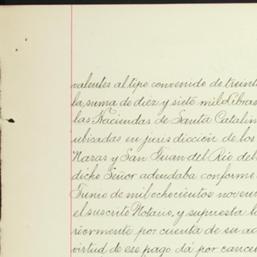 valentes al tipo convenido de treint
la, suma de diez y siete mil Libras
las Haciendas de Santa Catalin
ubicadas en juris diccion de los
Nazas y San Juan del Rio del
dicho Señor adeudaba conforme
Junio de mil ochocientos noven
el suscrito Notario, y supuesta la
riormente por cuenta de su ad
virtud de ese pago dá por cance